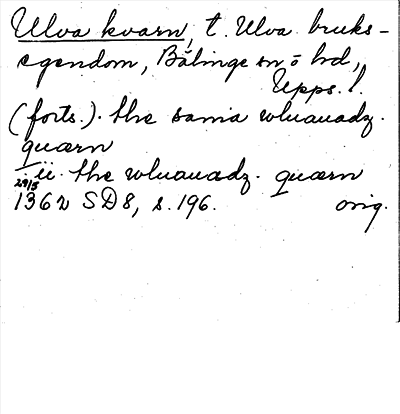 Ulva kvarn, t. Ulva bruks-
egendom, Bälinge sn o hd,
Upps. l.
(forts.). the sama wluauadz.
quærn
ii. the wluauædz. quærn
29/5
1362 SD8, s. 196. orig.